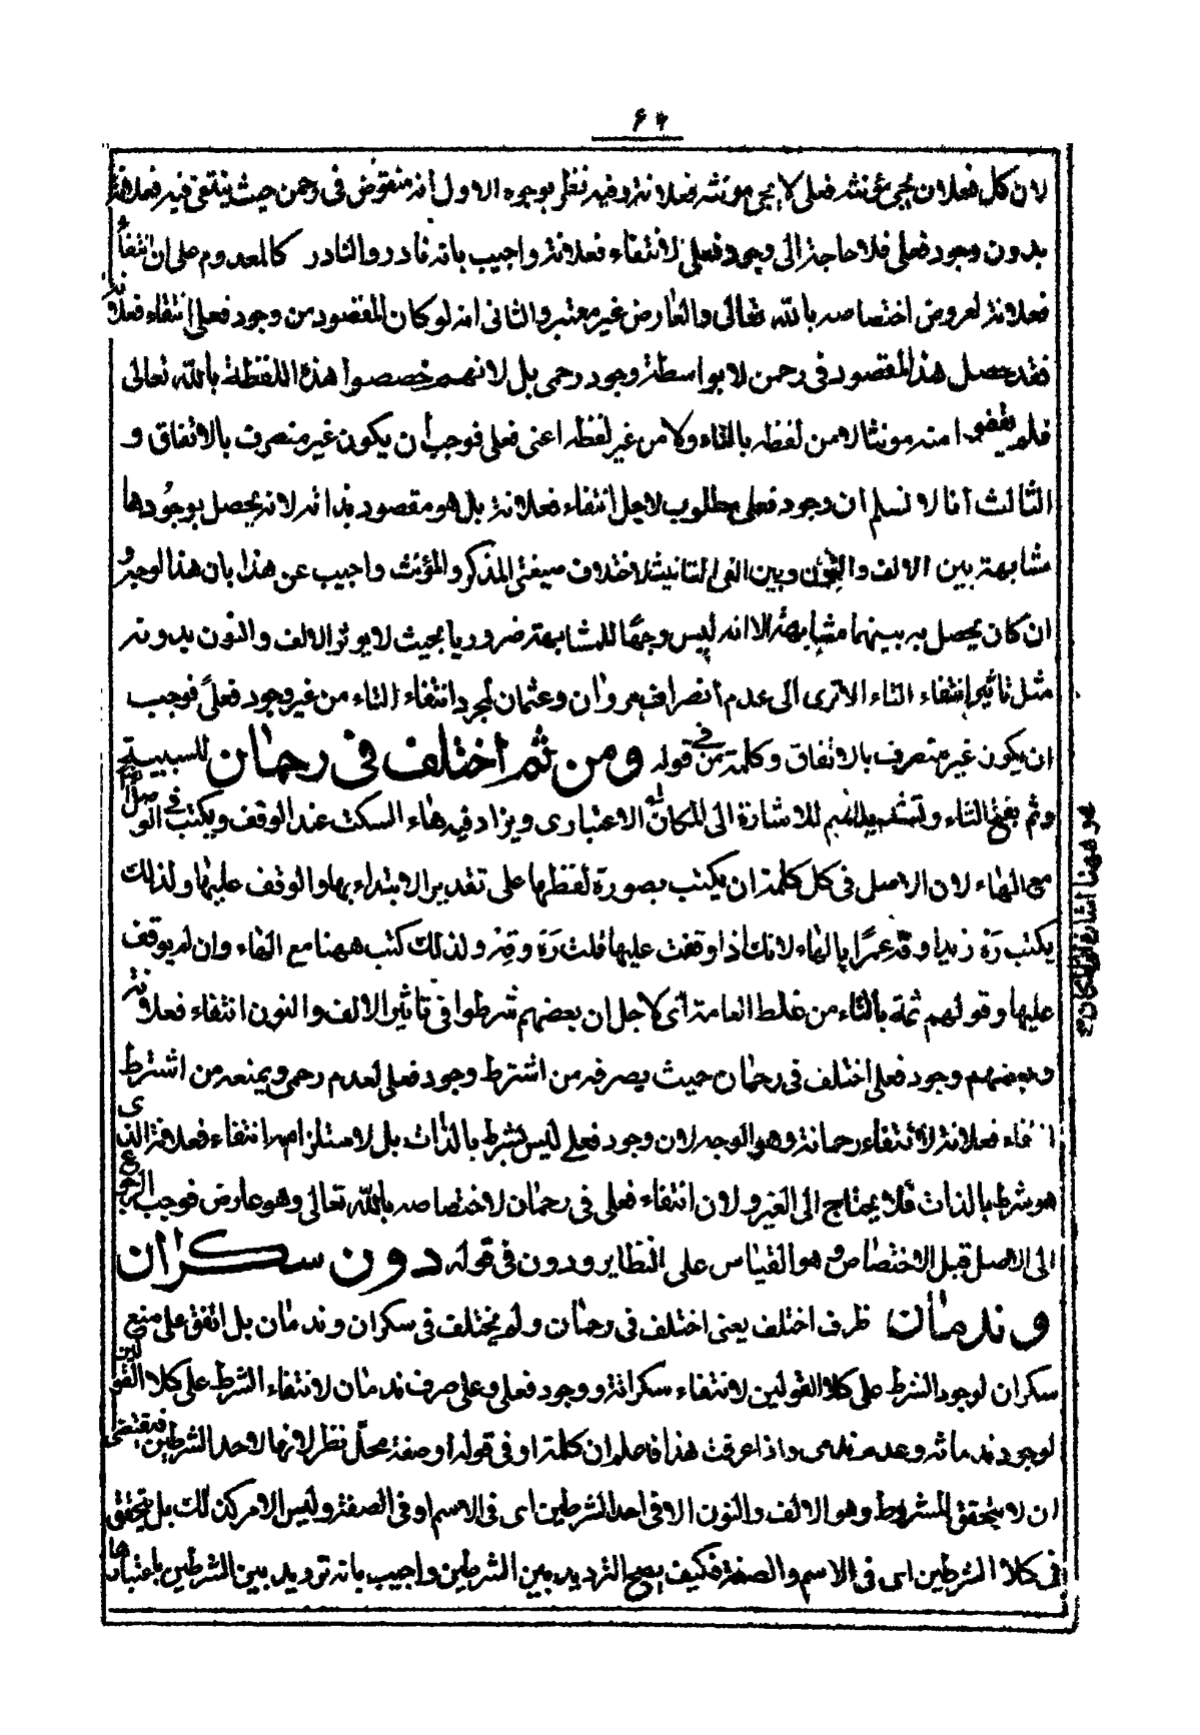 ۶۴
لان كل فعلان يجئ مؤنثه فعلى لا يجئ مؤنثه فعلانة وفيه نظر بوجوه الاول أنه منقوض فى رحمن حيث ينتفى فيه فعلانة
بدون وجود فعلى فلا حاجة الى وجود فعلى لانتفاء فعلانة واجيب بانه نادر والنادر كالمعدوم على ان انتفاء
فعلانة لعروض اختصاصه بالله تعالى والعارض غير معتبر والثانى انه لو كان المقصود من وجود فعلى انتفاء فعلانة
فقد حصل هذا المقصود فى رحمن لا بواسطة وجود رحمى بل لانهم خصصوا هذه اللفظة بالله تعالى
فلم يقضوا منه مونثا لا من لفظه بالتاء ولا من غير لفظه اعنى فعلى فوجب أن يكون غير منصرف بالاتفاق و
الثالث أنا لا نسلم ان وجود فعلى مطلوب لاجل انتفاء فعلانة بل هو مقصود بذاته لانه يحصل بوجودها
مشابهة بين الالف والنون وبين الفى التانيث لاختلاف صيغتى المذكر والمؤنث واجيب عن هذا بان هذا الوجه و
ان كان يحصل به بينهما مشابهة الا انه ليس وجها للمشابهة ضروريا بحيث لا يوثر الالف والنون بدونه
مثل تاثير انتفاء التاء الاترى الى عدم انصراف مروان وعثمان لمجرد انتفاء التاء من غير وجود فعلى فوجب
ان يكون غير منصرف بالاتفاق وكلمة من فى قوله ومن ثم اختلف فى رحمان للسببية
وثم بفتح الثاء وتشديد الميم للاشارة الى المكان الاعتبارى ويزاد فيه هاء السكت عند الوقف ويكتب فى الوصل
مع الهاء لان الاصل فى كل كلمة ان يكتب بصورة لفظها على تقدير الابتداء بها والوقف عليها ولذلك
يكتب رَهْ زيدا وقِهْ عمرًا بالهاء لانك اذا وقفت عليها قلت رَهْ وقِهْ ولذلك كتب ههنا مع الهاء وان لم يوقف
عليها وقولهم ثمة بالتاء من غلط العامة اى لاجل ان بعضهم شرطوا فى تاثير الالف والنون انتفاء فعلانة
وبعضهم وجود فعلى اختلف فى رحمان حيث يصرفه من اشترط وجود فعلى لعدم رحمى ويمنعه من اشترط
انتفاء فعلانة لانتفاء رحمانة وهو الوجه لان وجود فعلى ليس بشرط بالذات بل لاستلزامه انتفاء فعلانة الذى
هو شرط بالذات فلا يحتاج الى الغير ولان انتفاء فعلى فى رحمان لاختصاصه بالله تعالى وهو عارض فوجب الرجوع
الى الاصل قبل الاختصاص وهو القياس على النظاير ودون فى قوله دون سكران
وندمان ظرف اختلف يعنى اختلف فى رحمان ولم يختلف فى سكران وندمان بل اتفق على منع
سكران لوجود الشرط على كلا القولين لانتفاء سكرانة ووجود فعلى وعلى صرف ندمان لانتفاء الشرط على كلا القولين
لوجود ندمانة وعدم ندمى واذا عرفت هذا فاعلم ان كلمة او فى قوله او صفة محل نظر لانها لاحد الشرطين فيقتضى
ان لا يتحقق المشروط وهو الالف والنون الا فى احد الشرطين اى فى الاسم او فى الصفة وليس الامر كذلك بل يتحقق
فى كلا الشرطين اى فى الاسم والصفة فكيف يصح الترديد بين الشرطين واجيب بانه ترديد بين الشرطين باعتبار
هو ههنا اشارة الى المكان